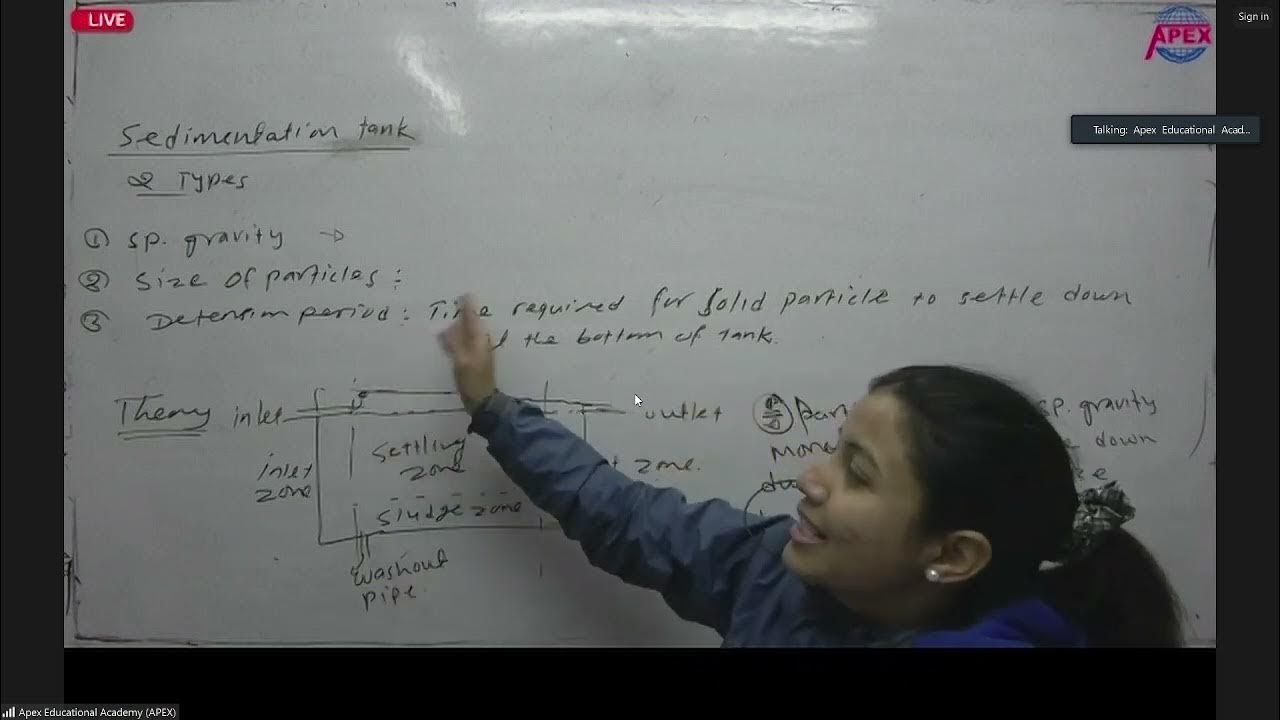 LIVE
Sign in
APEX
Talking: Apex Educational Acad...
Sedimentation tank
2 Types
① sp. gravity →
② Size of particles :
③ Detension period : Time required for solid particle to settle down
the bottom of tank.
Theory
inlet
outlet
inlet zone
settling zone
zone.
sludge zone
washout pipe
sp. gravity
more
down
Apex Educational Academy (APEX)